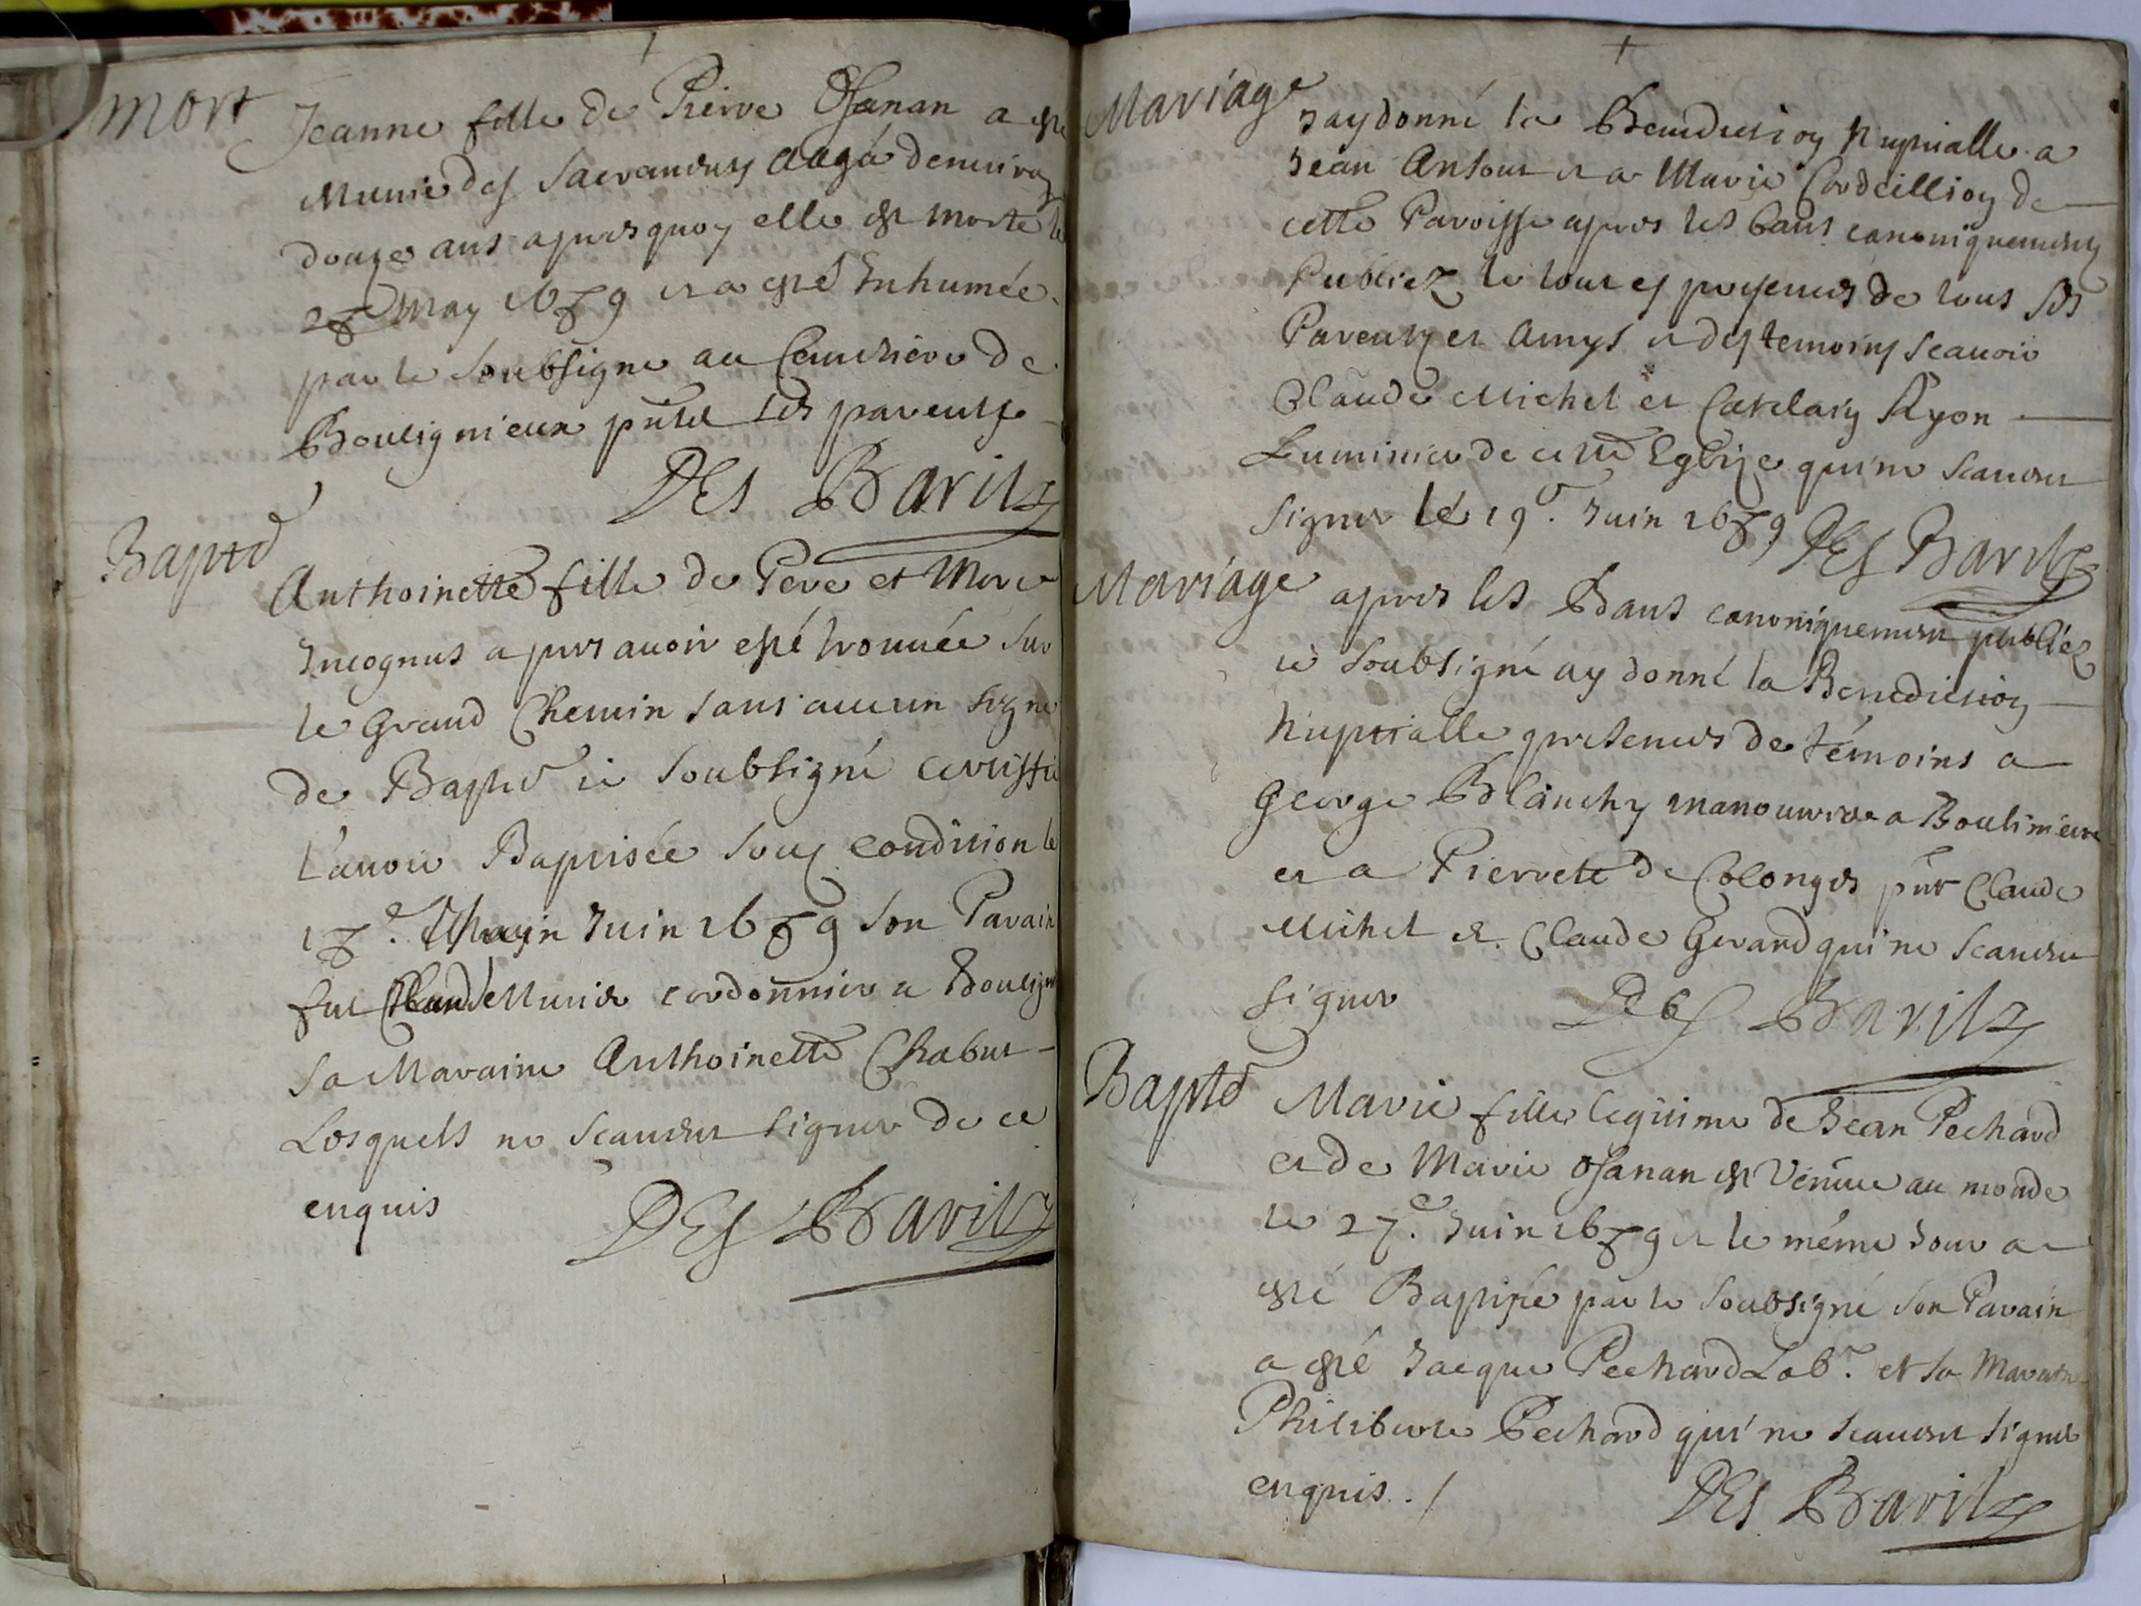 mort
Jeanne fille de Pierre Osanan a esté
Munie des Sacrements aagé denuiron
douze ans apres quoy elle est morte le
May 1679 et a esté Inhumée
par le Soubsigne au Cemetiere de
Boulignieux pntes ses parents
DES Barilz
Bapte
Anthoinette fille de Pere et Mere
Incognus apres auoir esté trouuée sur
le Grand Chemin sans aucun signe
de Bapte ie soubsigné certiffie
l'auoir Baptisée souz condition le
17e. Juin 1679 son Parain
fut Claude cordonnier a Boulign
Sa Maraine Anthoinette Chabut
Lesquels ne scauent signer de ce
enquis
DES Barilz
Mariage
Jay donné la Benediction Nuptialle a
Jean Ansout et a Marie Cordeillion de
cette Paroisse apres les bans canoniquement
Publiez le tout en presence de tous ses
Parents et Amys et des temoins scauoir
Claude Michel et Catelain Ryon
Luminier de cette Eglize qui ne scauent
signer le 19e. Juin 1679 DES Barilz
Mariage
apres les Bans canoniquement publiéz
ie soubsigné ay donné la Benediction
Nuptialle presences de témoins a
George Blanchy manouvrier a Boulinieux
et a Pierrete de Colonges pnt Claude
Michel et Claude Gerard qui ne scauent
signer
DES Barilz
Bapte
Marie fille legitime de Jean Pechard
et de Marie Osanan est Venue au monde
le 27e. Juin 1679 et le méme Jour a
esté Baptisée par le soubsigné son Parain
a esté Jacque Pechard Labr. et sa Maraine
Philiberte Pechard qui ne scauent signer
enquis . /
DES Barilz